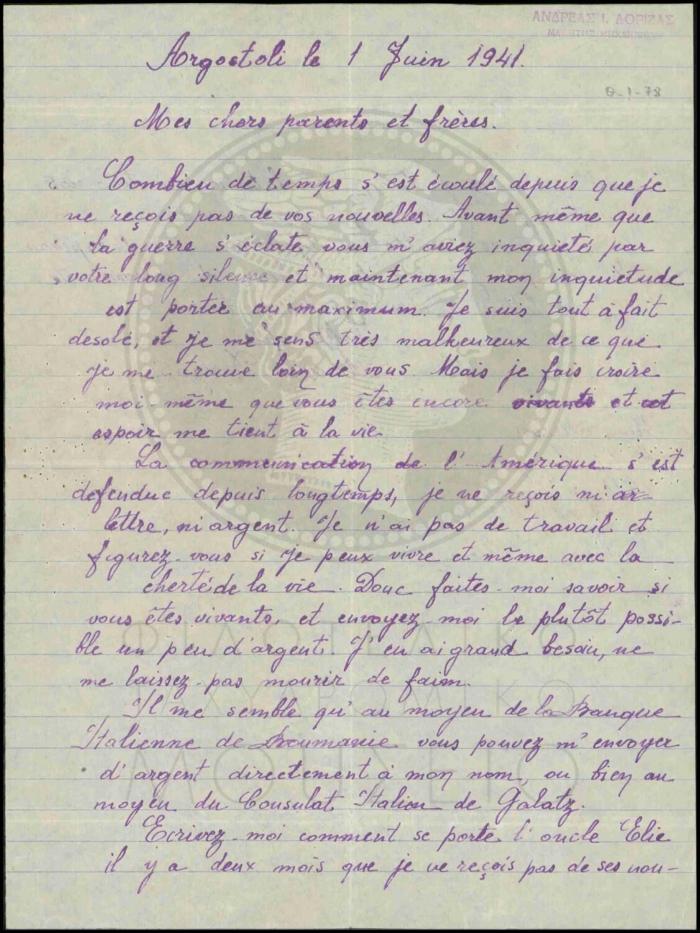 ΑΝΔΡΕΑΣ Ι. ΔΟΡΙΖΑΣ
Θ-1-78
Argostoli le 1 Juin 1941.
Mes chers parents et frères.
Combien de temps s'est écoulé depuis que je
ne reçois pas de vos nouvelles. Avant même que
la guerre s'éclate vous m'aviez inquiété par
votre long silence et maintenant mon inquietude
est porter au maximum. Je suis tout à fait
desolé, et je me sens très malheureux de ce que
je me trouve loin de vous Mais je fais croire
moi-même que vous êtes encore vivants et cet
espoir me tient à la vie.
La communication de l'Amérique s'est
defendue depuis longtemps, je ne reçois ni ar-
lettre, ni argent. Je n'ai pas de travail et
figurez-vous si je peux vivre et même avec la
cherté de la vie. Donc faites-moi savoir si
vous êtes vivants, et envoyez moi le plutôt possi-
ble un peu d'argent. J'en ai grand besoin, ne
me laissez-pas mourir de faim.
Il me semble qu'au moyen de la Banque
Italienne de Roumanie vous pouvez m'envoyer
d'argent directement à mon nom, ou bien au
moyen du Consulat Italien de Galatz.
Ecrivez-moi comment se porte l'oncle Elie
il y a deux mois que je ne reçois pas de ses nou-
ΦΙΛΟΤΕΛΙΚΟ
ΜΟΥΣΕΙΟ